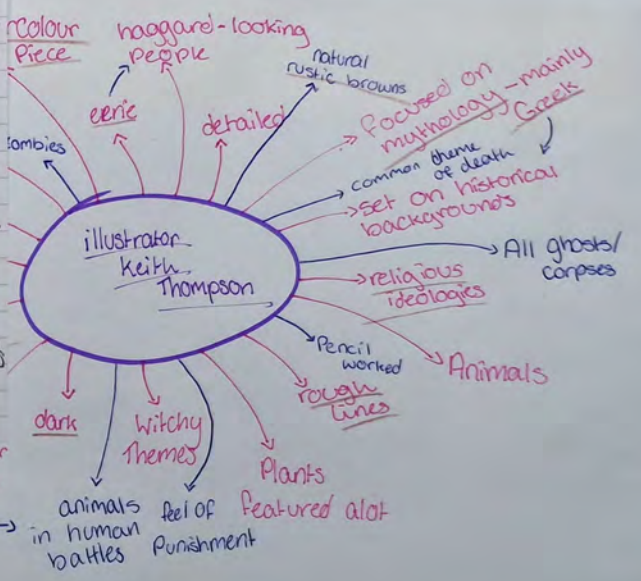 colour
Piece
haggard-looking
people
natural
rustic browns
eerie
detailed
focused on
mythology - mainly
Greek
zombies
common theme
of death
set on historical
backgrounds
illustrator
Keith
Thompson
All ghosts/
corpses
religious
ideologies
Pencil
worked
Animals
rough
lines
dark
Witchy
Themes
Plants
featured alot
animals
in human
battles
feel of
Punishment